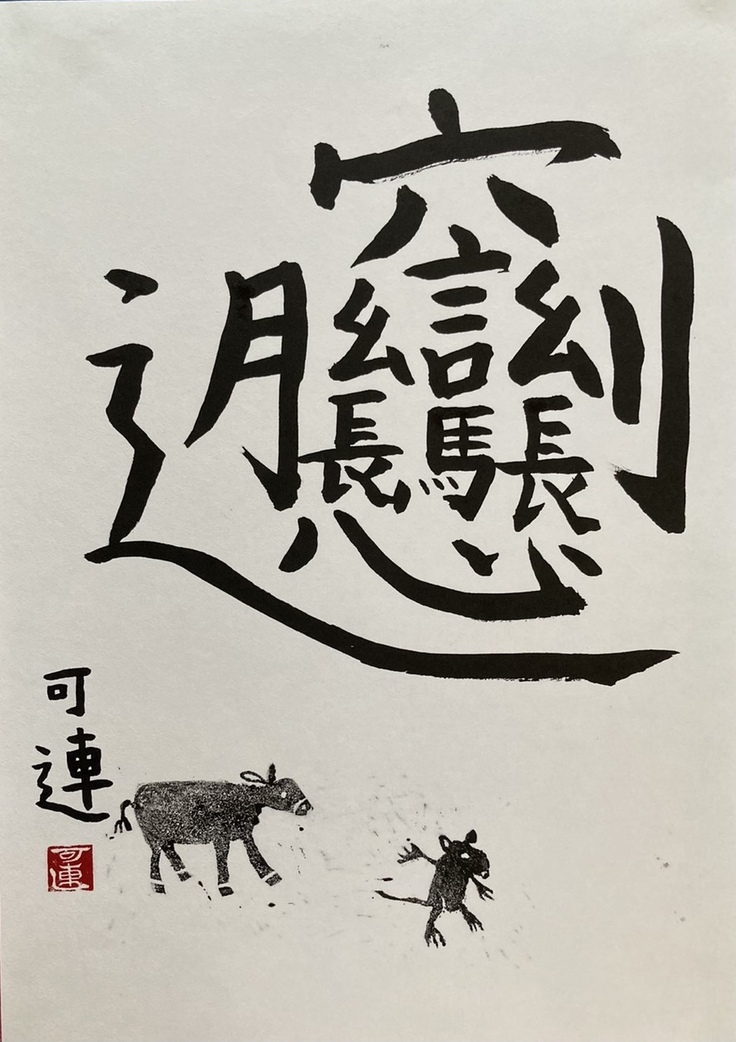 𰻞
可連
可連